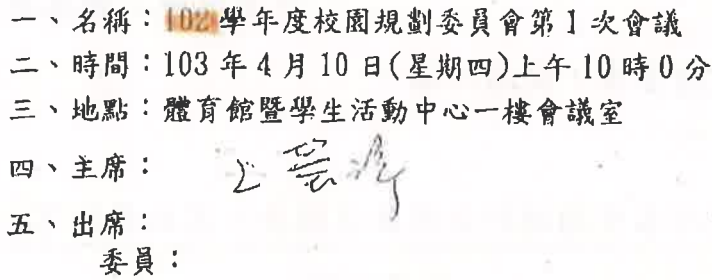 一、名稱：102學年度校園規劃委員會第1次會議
二、時間：103年4月10日(星期四)上午10時0分
三、地點：體育館暨學生活動中心一樓會議室
四、主席：
五、出席：
委員：